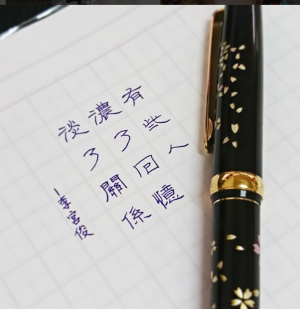 有些人
濃了回憶
淡了關係
－李宮俊